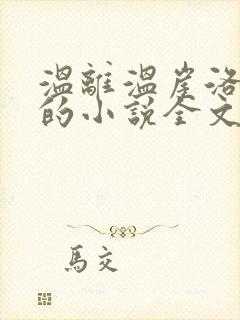 溫離溫崖洛
的小説全文
馬交